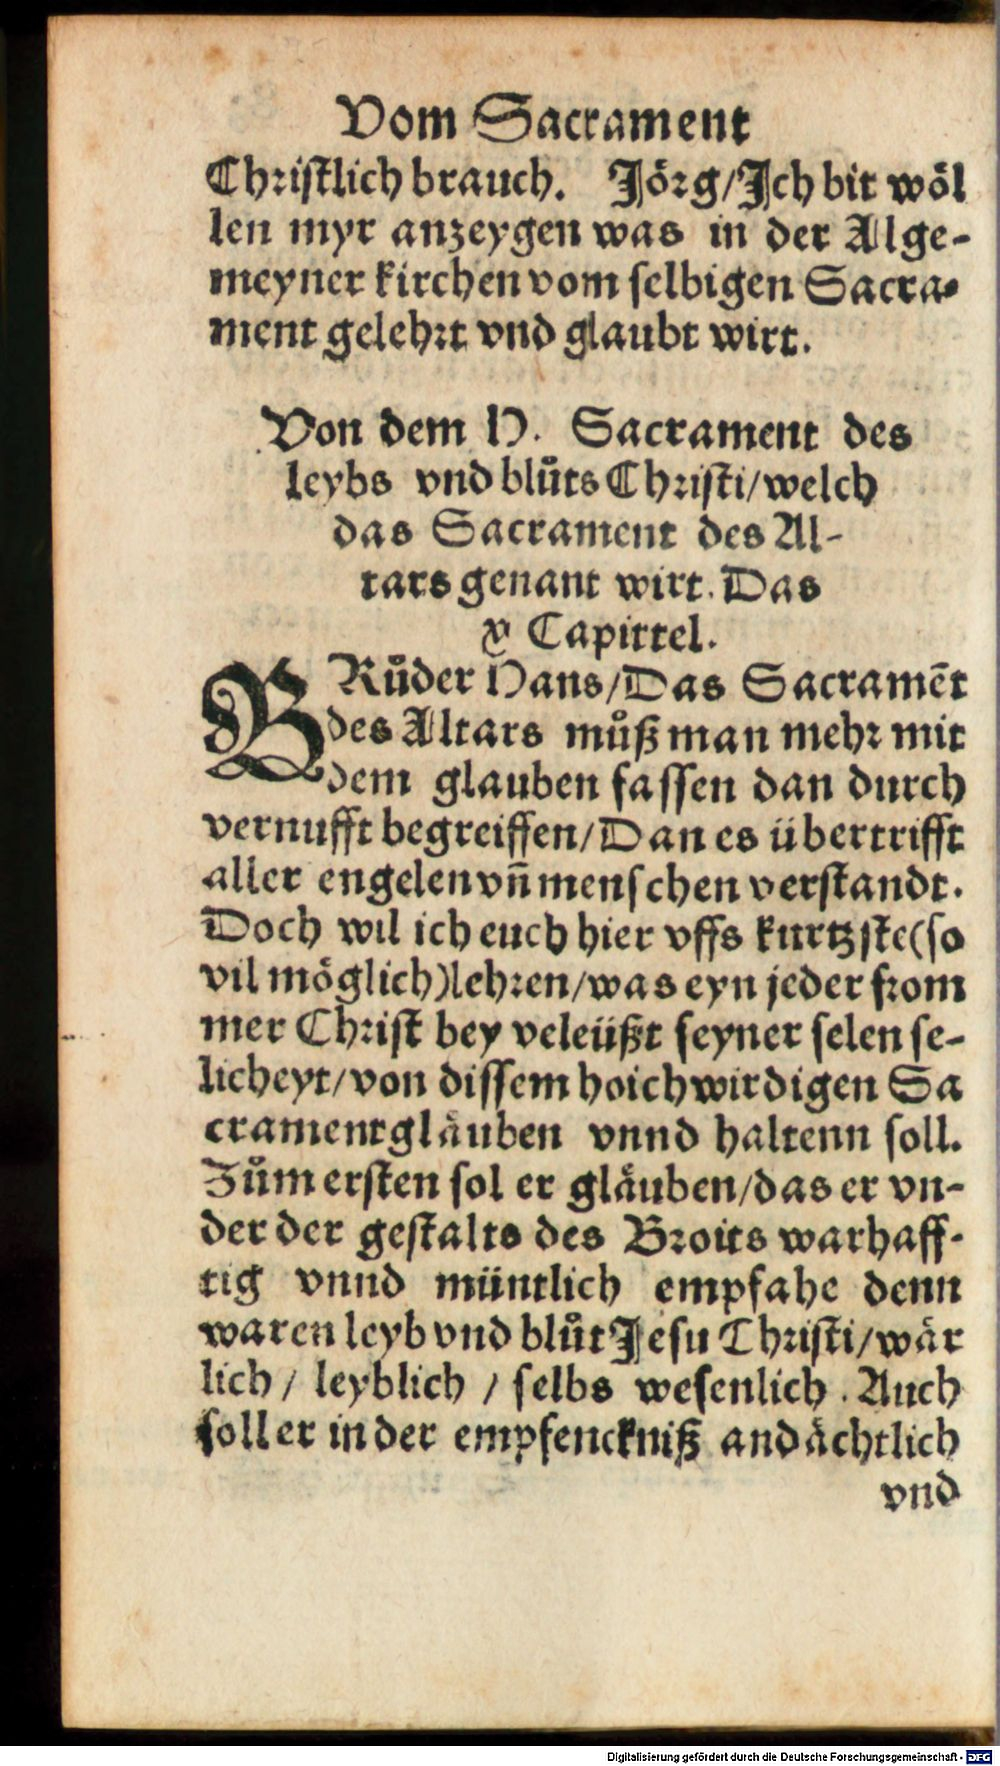 Vom Sacrament
Christlich brauch. Jörg/Ich bit wöl
len myr anzeygen was in der Alge-
meyner kirchen vom selbigen Sacra-
ment gelehrt vnd glaubt wirt.
Von dem H. Sacrament des
leybs vnd blůts Christi/welch
das Sacrament des Al-
tars genant wirt. Das
v Capittel.
BRůder Hans/Das Sacramēt
des Altars můß man mehr mit
dem glauben fassen dan durch
vernufft begreiffen/Dan es übertrifft
aller engelen vn̄ menschen verstandt.
Doch wil ich euch hier vffs kurtzste(so
vil möglich)lehren/was eyn jeder from
mer Christ bey veleüßt seyner selen se-
licheyt/von dissem hoichwirdigen Sa
crament gläuben vnnd haltenn soll.
Zům ersten sol er gläuben/das er vn-
der der gestalts des Broits warhaff-
tig vnnd müntlich empfahe denn
waren leyb vnd blůt Jesu Christi/wär
lich / leyblich / selbs wesenlich . Auch
soll er in der empfenckniß andächtlich
vnd
Digitalisierung gefördert durch die Deutsche Forschungsgemeinschaft - DFG